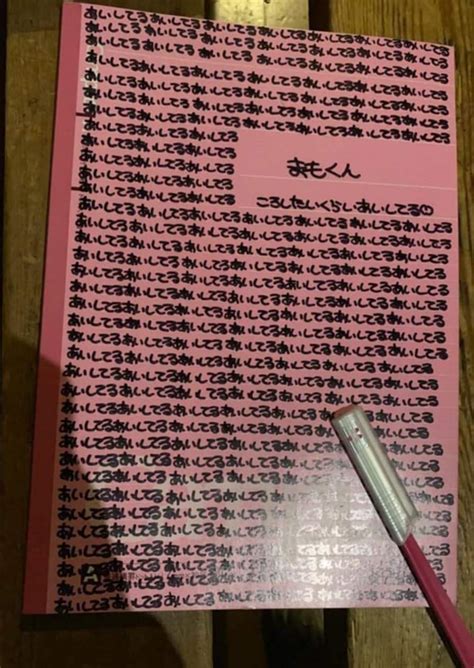 あいしてるあいしてるあいしてるあいしてるあいしてる
あいしてるあいしてるあいしてるあいしてるあいしてる
あいしてるあいしてるあいしてるあいしてるあいしてる
あいしてるあいしてるあいしてるあいしてるあいしてる
あいしてるあいしてるあいしてるあいしてるあいしてる
あいしてるあいしてるあいしてるあいしてるあいしてる
あいしてるあいしてるあいしてるあいしてるあいしてる
あいしてるあいしてる
あいしてるあいしてる
あいしてるあいしてる
あいしてるあいしてる
あいしてるあいしてる
まもくん
ころしたいくらいあいしてる☺
あいしてるあいしてるあいしてるあいしてるあいしてる
あいしてるあいしてるあいしてるあいしてるあいしてる
あいしてるあいしてるあいしてるあいしてるあいしてる
あいしてるあいしてるあいしてるあいしてるあいしてる
あいしてるあいしてるあいしてるあいしてるあいしてる
あいしてるあいしてるあいしてるあいしてるあいしてる
あいしてるあいしてるあいしてるあいしてるあいしてる
あいしてるあいしてるあいしてるあいしてるあいしてる
あいしてるあいしてるあいしてるあいしてるあいしてる
あいしてるあいしてるあいしてるあいしてるあいしてる
あいしてるあいしてるあいしてるあいしてるあいしてる
あいしてるあいしてるあいしてるあいしてるあいしてる
あいしてるあいしてるあいしてるあいしてるあいしてる
あいしてるあいしてるあいしてるあいしてるあいしてる
あいしてるあいしてるあいしてるあいしてる
あいしてるあいしてるあいしてるあいしてる
あいしてるあいしてるあいしてるあいしてる
あいしてるあいしてるあいしてるあいしてる
あいしてるあいしてるあいしてるあいしてる
あいしてるあいしてるあいしてるあいしてる
あいしてるあいしてるあいしてるあいしてるあいしてる
あいしてるあいしてるあいしてるあいしてるあいしてる
あいしてるあいしてるあいしてるあいしてるあいしてる
あいしてるあいしてるあいしてるあいしてるあいしてる
あいしてるあいしてるあいしてるあいしてるあいしてる